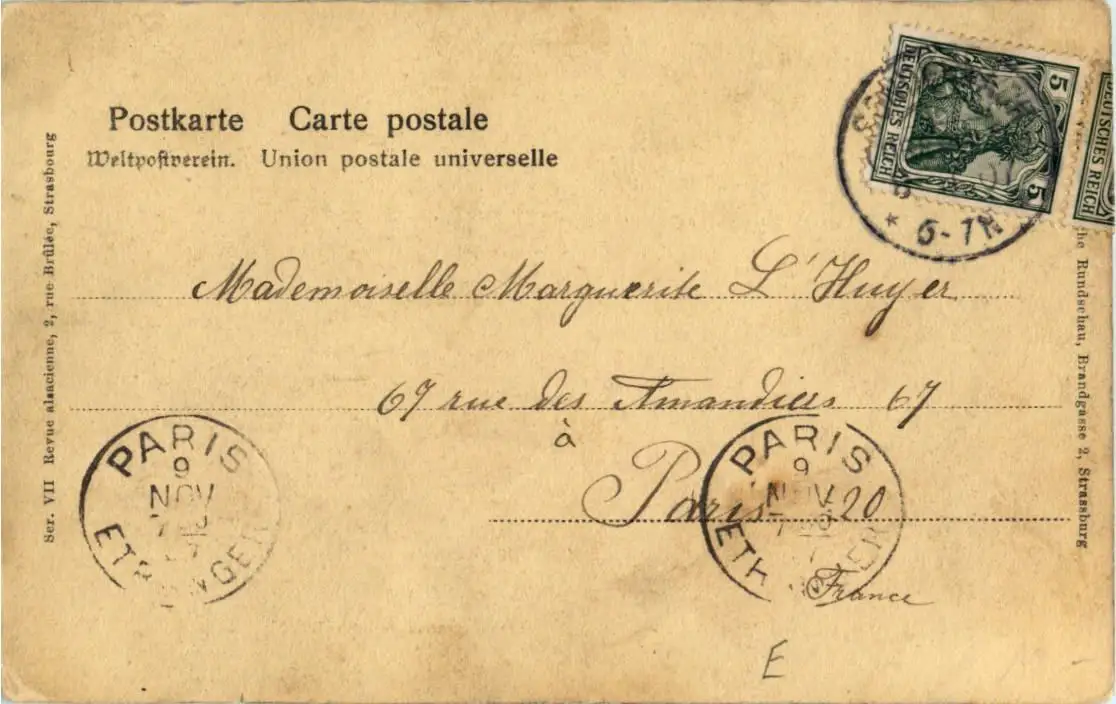 Postkarte Carte postale
Weltpostverein. Union postale universelle
5
DEUTSCHES REICH
5
DEUTSCHES REICH
* 6-7N
Mademoiselle Marguerite L'Huyer
67 rue des Amandiers 67
à
Paris 20
France
PARIS
9
NOV
ETRANGER
PARIS
9
NOV
ETRANGER
E
Ser. VII Revue alsacienne, 2, rue Brûlée, Strasbourg
Rundschau, Brandgasse 2, Strassburg